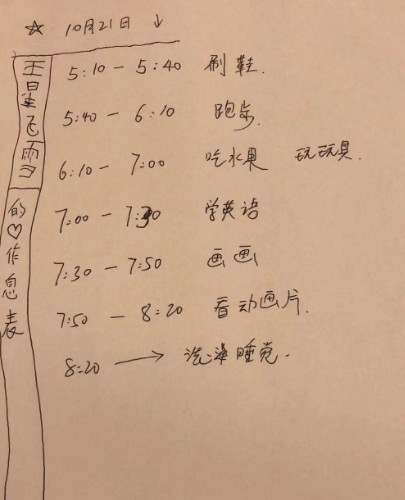 ☆ 10月21日 ↓
王星飞雪的♡作息表
5:10 — 5:40 刷鞋.
5:40 — 6:10 跑步.
6:10 — 7:00 吃水果 玩玩具.
7:00 — 7:30 学英语
7:30 — 7:50 画画
7:50 — 8:20 看动画片.
8:20 → 洗澡睡觉.